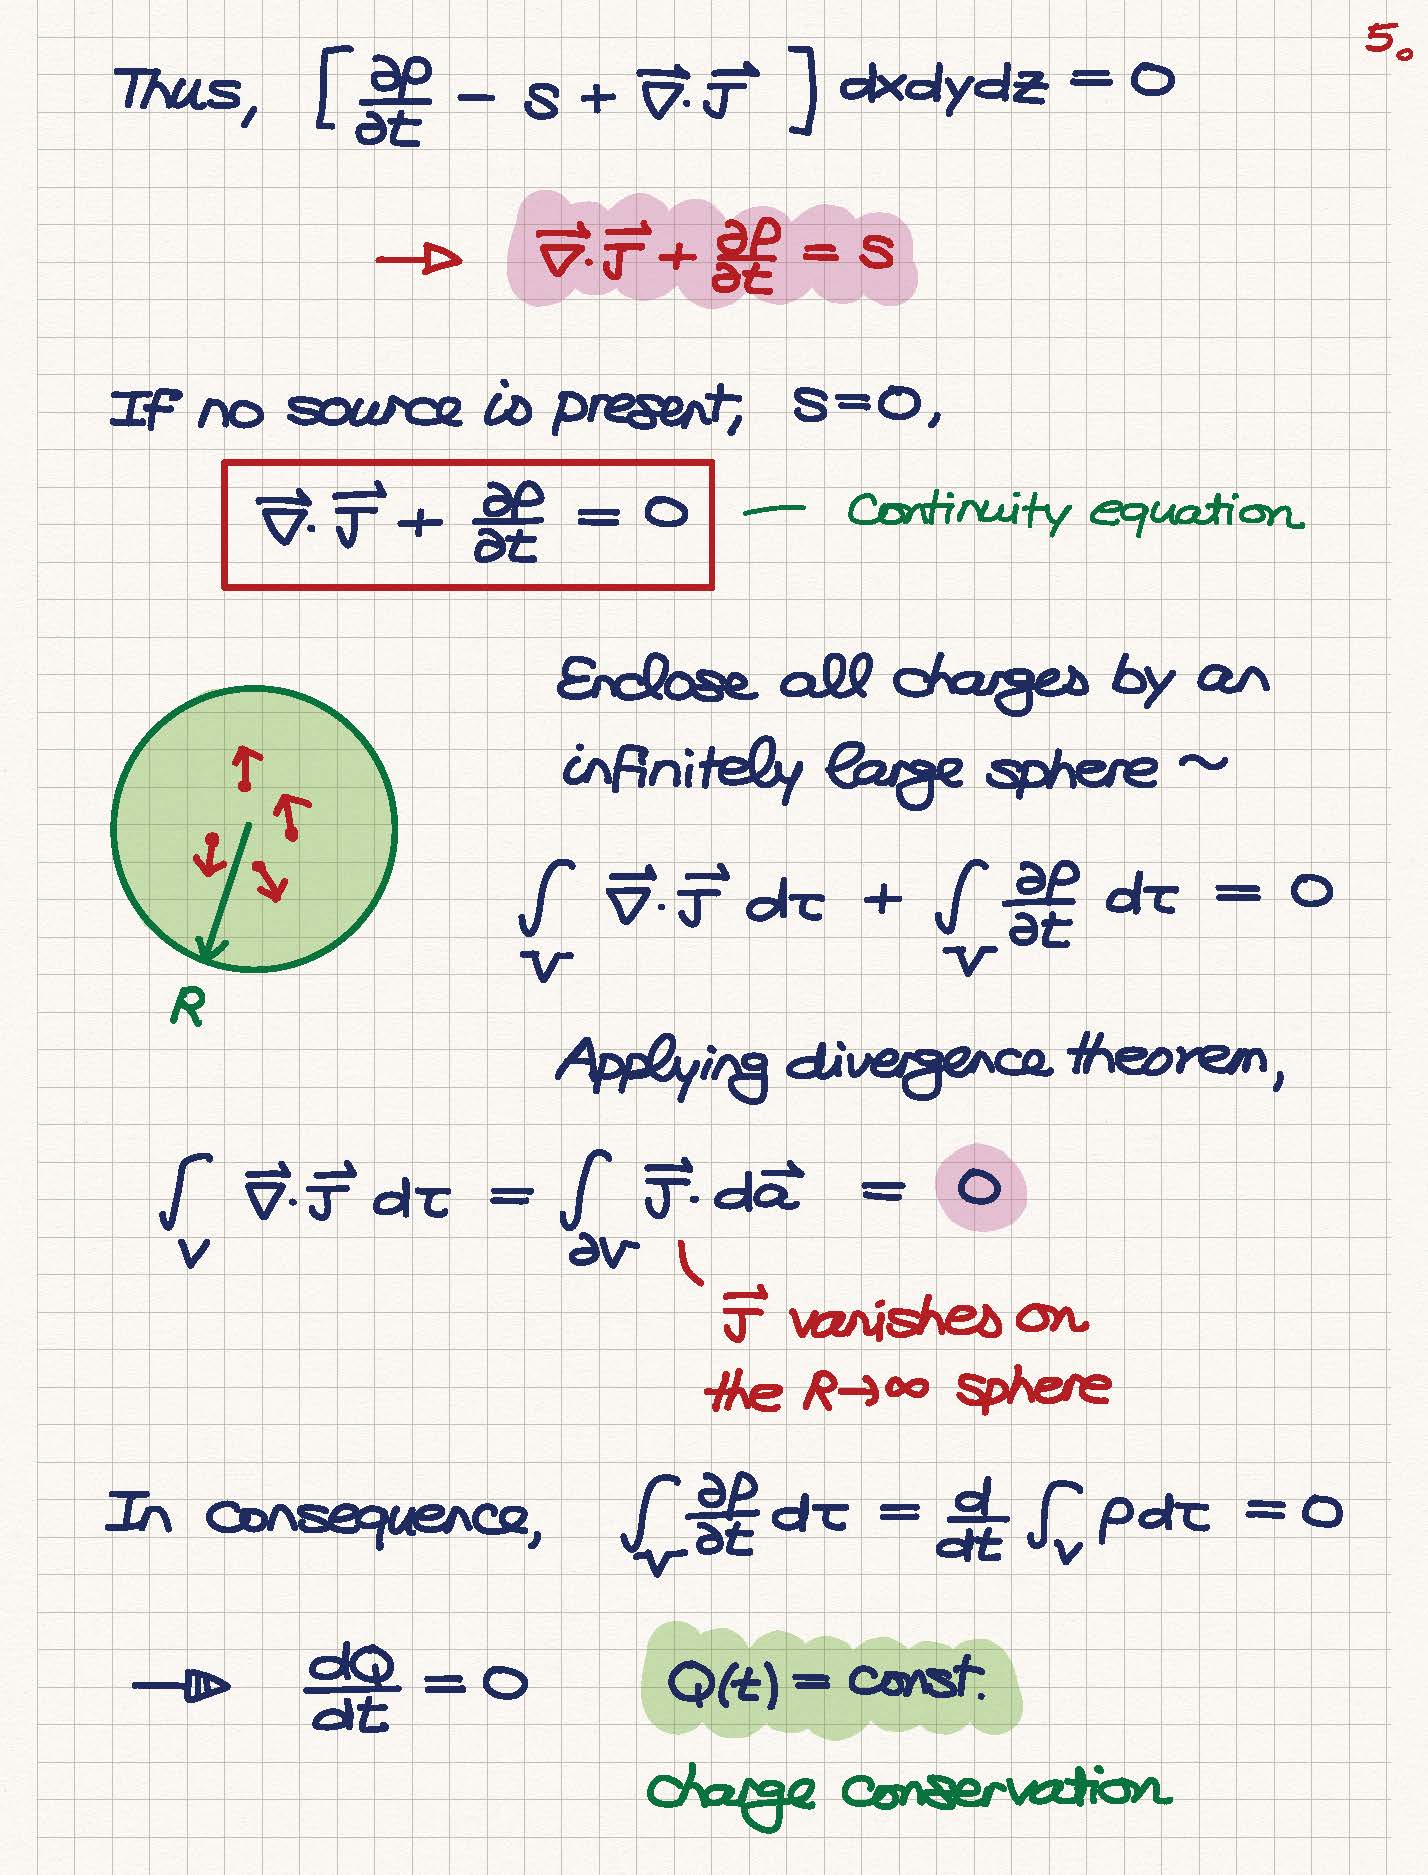 5.
Thus, [∂ρ/∂t − s + ∇⃗·J⃗] dxdydz = 0
→ ∇⃗·J⃗ + ∂ρ/∂t = s
If no source is present, s=0,
∇⃗·J⃗ + ∂ρ/∂t = 0 — Continuity equation
Enclose all charges by an
infinitely large sphere ~
∫_V ∇⃗·J⃗ dτ + ∫_V ∂ρ/∂t dτ = 0
R
Applying divergence theorem,
∫_V ∇⃗·J⃗ dτ = ∫_∂V J⃗·da⃗ = 0
J⃗ vanishes on
the R→∞ sphere
In consequence, ∫_V ∂ρ/∂t dτ = d/dt ∫_V ρdτ = 0
→ dQ/dt = 0 Q(t) = const.
charge conservation